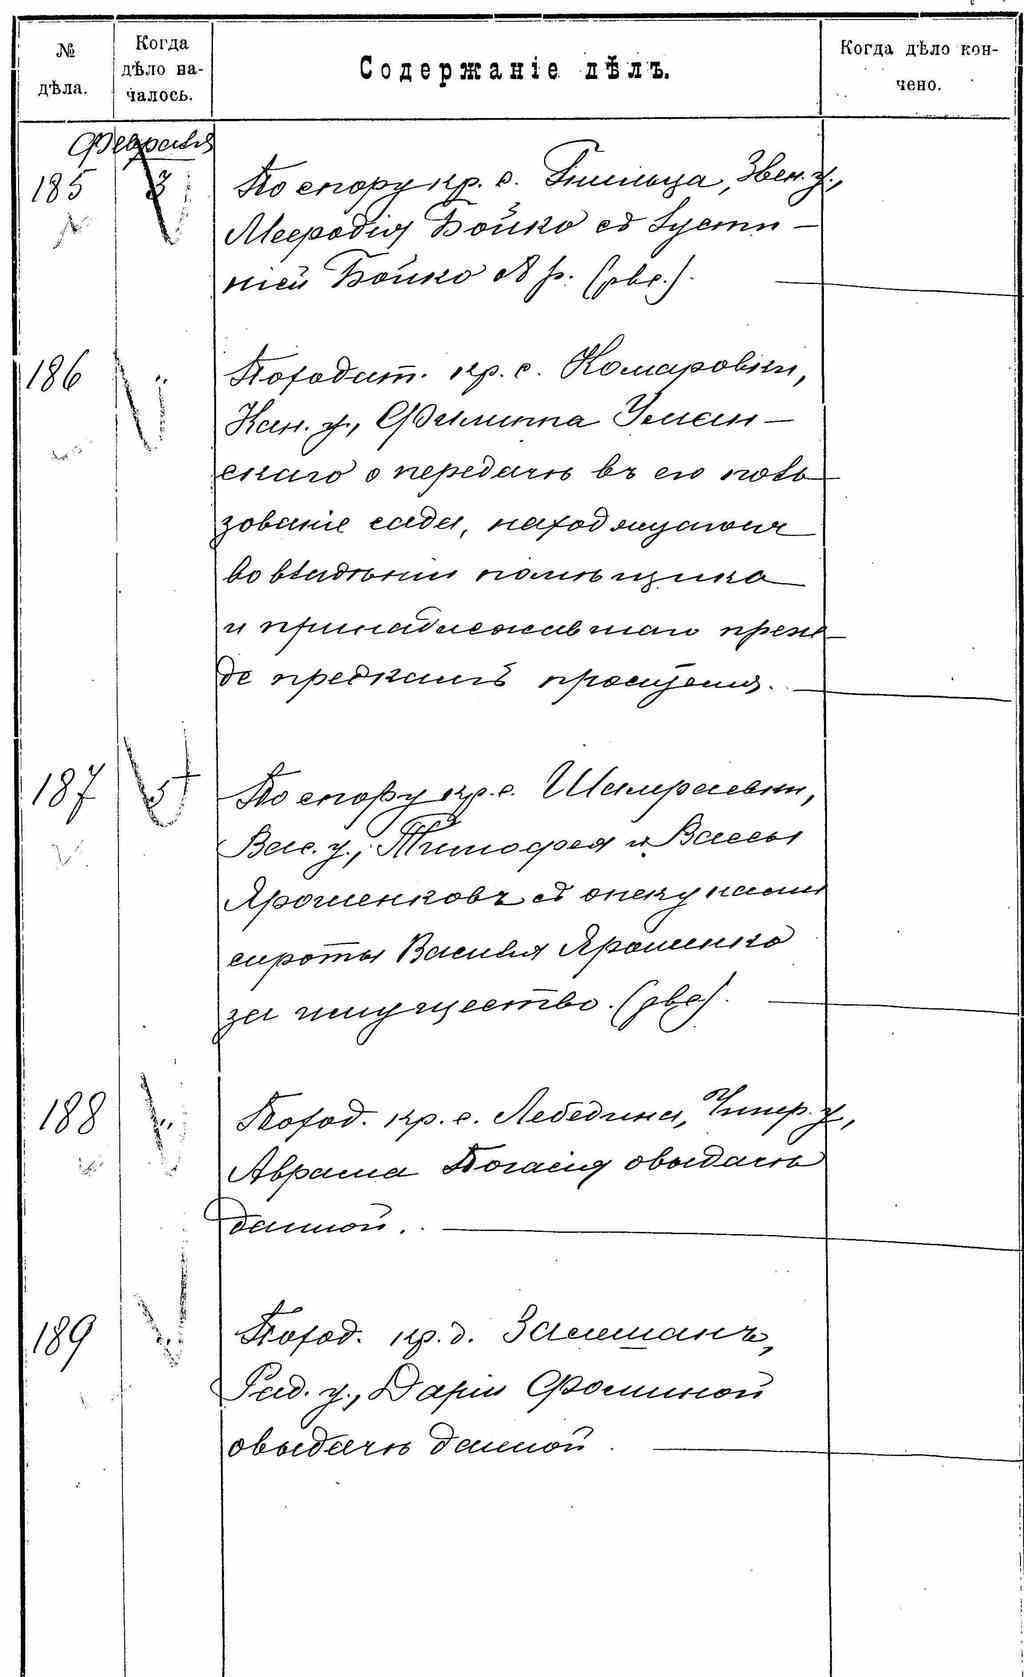 № дѣла.
Когда дѣло началось.
Содержаніе дѣлъ.
Когда дѣло кончено.
Февраля
185 3 По спору кр. с. Гнильца, Звен. у.,
Меѳодія Бойко съ Густи-
ніей Бойко
186 " По ходат. кр. с. Комаровки,
Кан. у., Филиппа Уман-
скаго о передачѣ въ его поль-
зованіе сада, находящагося
во владѣніи помѣщика
и принадлежавшаго преж-
де предкамъ просителя.
187 5 По спору кр. с. Шамраевки,
Вас. у., Тимофея и Вассы
Ярошенковъ съ опекунами
сироты Василія Ярошенко
за имущество. (рвс.).
188 " По ход. кр. с. Лебедина, Чигир. у.,
Аврама Погасія о выдачѣ
данной.
189 " По ход. кр. д.
Рад. у., Даріи Фоминой
о выдачѣ данной